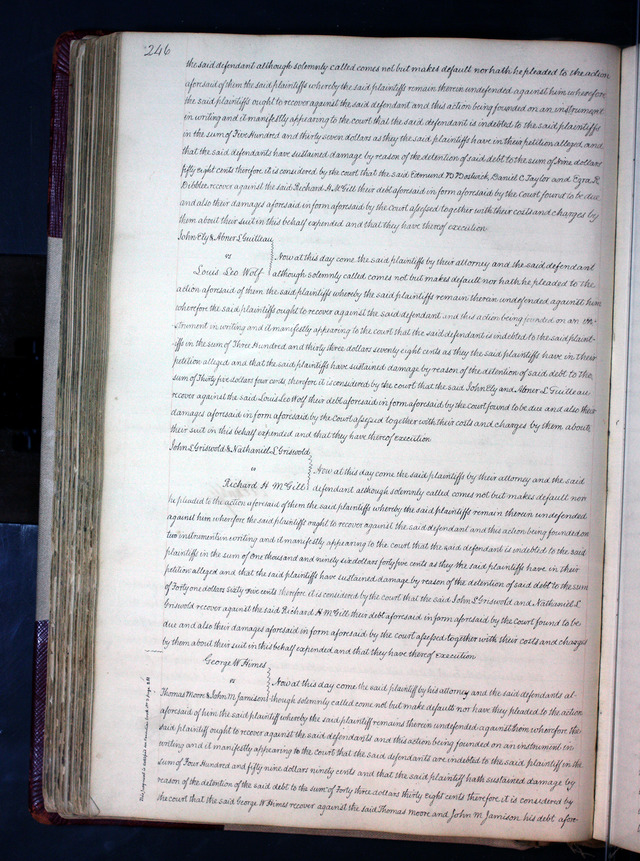 246
the said defendant although solemnly called comes not but makes default nor hath he pleaded to the action
aforesaid of them the said plaintiffs whereby the said plaintiffs remain therein undefended against him wherefore
the said plaintiffs ought to recover against the said defendant and this action being founded on an instrument
in writing and it manifestly appearing to the court that the said defendant is indebted to the said plaintiffs
in the sum of Five Hundred and thirty seven dollars as they the said plaintiffs have in their petition alleged, and
that the said defendants have sustained damage by reason of the detention of said debt to the sum of Nine dollars
fifty eight cents therefore it is considered by the court that the said Edmund W Bostwick, Daniel C Taylor and Ezra R
Dibblee recover against the said Richard H McGill their debt aforesaid in form aforesaid by the Court found to be due
and also their damages aforesaid in form aforesaid by the Court assessed together with their costs and charges by
them about their suit in this behalf expended and that they have thereof execution
John Ely & Abner L Guilleau
vs
Louis Leo Wolf
Now at this day come the said plaintiffs by their attorney and the said defendant
although solemnly called comes not but makes default nor hath he pleaded to the
action aforesaid of them the said plaintiffs whereby the said plaintiffs remain therein undefended against him
wherefore the said plaintiffs ought to recover against the said defendant and this action being founded on an in-
strument in writing and it manifestly appearing to the court that the said defendant is indebted to the said plaint-
iffs in the sum of Three Hundred and thirty three dollars seventy eight cents as they the said plaintiffs have in their
petition alleged and that the said plaintiffs have sustained damage by reason of the detention of said debt to the
sum of Thirty five dollars four cents, therefore it is considered by the court that the said John Ely and Abner L Guilleau
recover against the said Louis Leo Wolf their debt aforesaid in form aforesaid by the court found to be due and also their
damages aforesaid in form aforesaid by the Court assessed together with their costs and charges by them about
their suit in this behalf expended and that they have thereof execution
John L Griswold & Nathaniel L Griswold
vs
Richard H McGill
Now at this day come the said plaintiffs by their attorney and the said
defendant although solemnly called comes not but makes default nor
he pleaded to the action aforesaid of them the said plaintiffs whereby the said plaintiffs remain therein undefended
against him wherefore the said plaintiffs ought to recover against the said defendant and this action being founded on
two instruments in writing and it manifestly appearing to the court that the said defendant is indebted to the said
plaintiffs in the sum of one thousand and ninety six dollars forty five cents as they the said plaintiffs have in their
petition alleged and that the said plaintiffs have sustained damage by reason of the detention of said debt to the sum
of Forty one dollars sixty five cents therefore it is considered by the court that the said John L Griswold and Nathaniel L
Griswold recover against the said Richard H McGill their debt aforesaid in form aforesaid by the court found to be
due and also their damages aforesaid in form aforesaid by the court assessed together with their costs and charges
by them about their suit in this behalf expended and that they have thereof execution
George W Himes
vs
Thomas Moore & John M Jamison
Now at this day come the said plaintiff by his attorney and the said defendants al-
though solemnly called come not but make default nor have they pleaded to the action
aforesaid of him the said plaintiff whereby the said plaintiff remains therein undefended against them wherefore the
said plaintiff ought to recover against the said defendants and this action being founded on an instrument in
writing and it manifestly appearing to the court that the said defendants are indebted to the said plaintiff in the
sum of Four Hundred and fifty nine dollars ninety cents and that the said plaintiff hath sustained damage by
reason of the detention of the said debt to the sum of Forty three dollars thirty eight cents therefore it is considered by
the court that the said George W Himes recover against the said Thomas Moore and John M Jamison his debt afore-